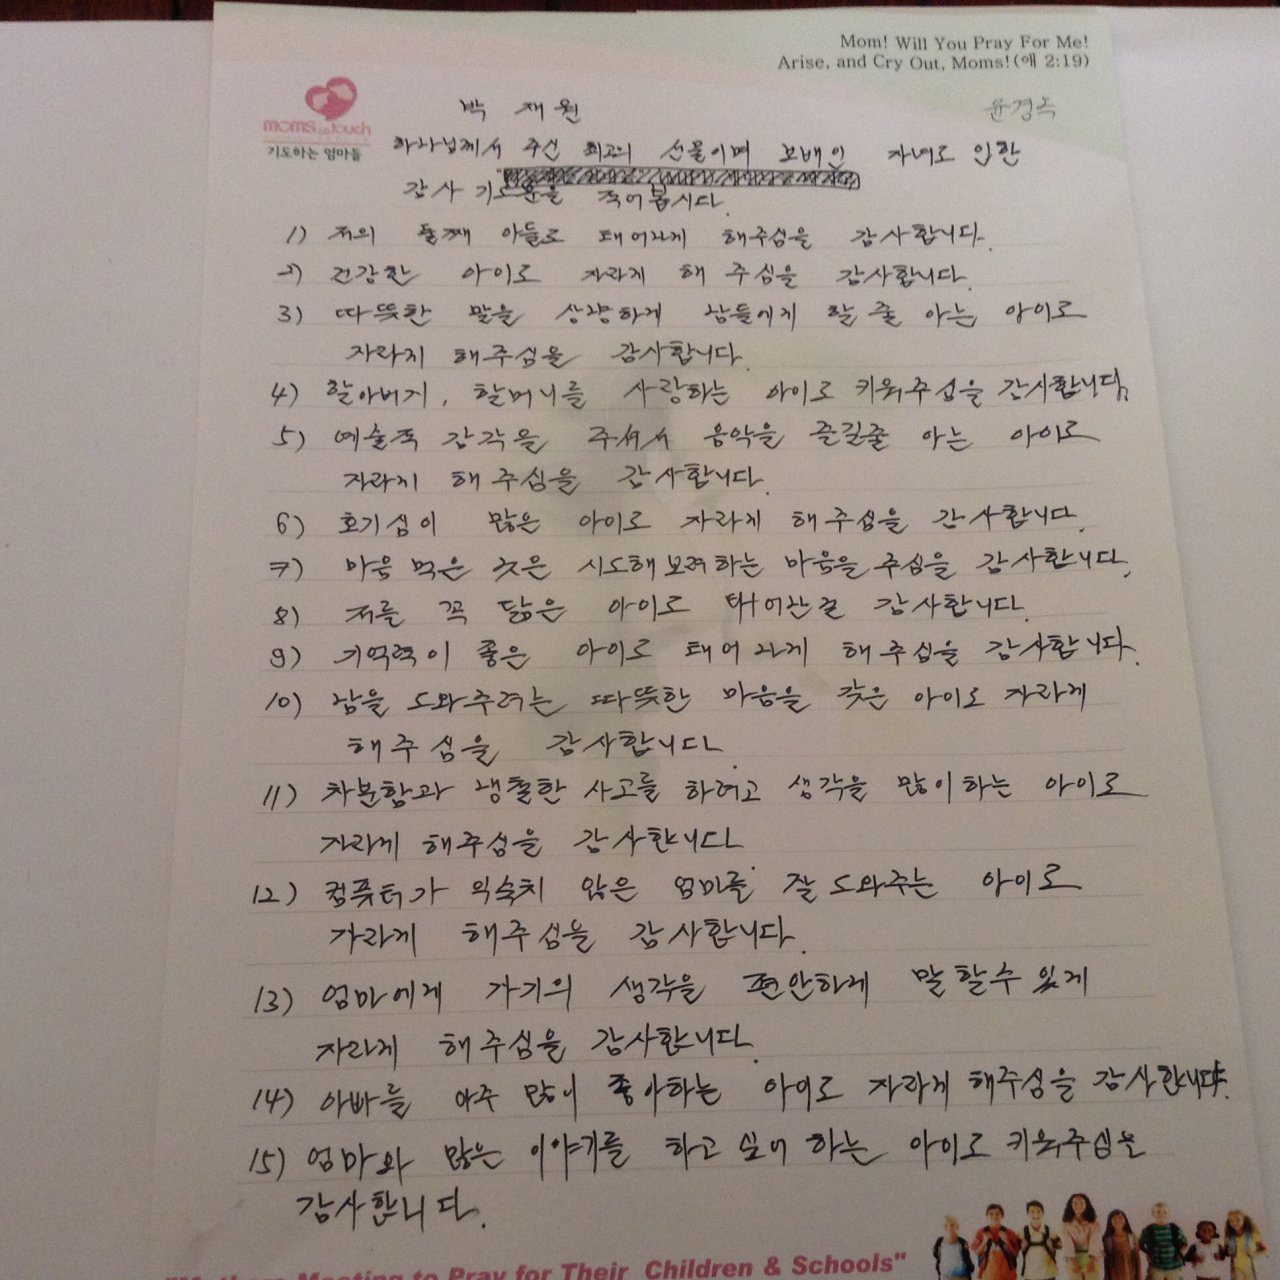 Mom! Will You Pray For Me!
Arise, and Cry Out, Moms!(애 2:19)
MOMS in touch
기도하는 엄마들
박 재원
윤경옥
하나님께서 주신 최고의 선물이며 보배인 자녀로 인한
감사 기도문을 적어봅시다.
1) 저의 둘째 아들로 태어나게 해주심을 감사합니다.
2) 건강한 아이로 자라게 해 주심을 감사합니다.
3) 따뜻한 말을 상냥하게 남들에게 할 줄 아는 아이로
자라게 해주심을 감사합니다.
4) 할아버지, 할머니를 사랑하는 아이로 키워주심을 감사합니다.
5) 예술적 감각을 주셔서 음악을 즐길줄 아는 아이로
자라게 해 주심을 감사합니다.
6) 호기심이 많은 아이로 자라게 해주심을 감사합니다.
7) 마음 먹은 것은 시도해보려하는 마음을 주심을 감사합니다.
8) 저를 꼭 닮은 아이로 태어난걸 감사합니다.
9) 기억력이 좋은 아이로 태어나게 해주심을 감사합니다.
10) 남을 도와주려는 따뜻한 마음을 갖은 아이로 자라게
해주심을 감사합니다.
11) 차분함과 냉철한 사고를 하려고 생각을 많이하는 아이로
자라게 해주심을 감사합니다.
12) 컴퓨터가 익숙치 않은 엄마를 잘 도와주는 아이로
자라게 해주심을 감사합니다.
13) 엄마에게 자기의 생각을 편안하게 말할수 있게
자라게 해주심을 감사합니다.
14) 아빠를 아주 많이 좋아하는 아이로 자라게 해주심을 감사합니다.
15) 엄마와 많은 이야기를 하고 싶어 하는 아이로 키워주심을
감사합니다.
Meeting to Pray for Their Children & Schools"